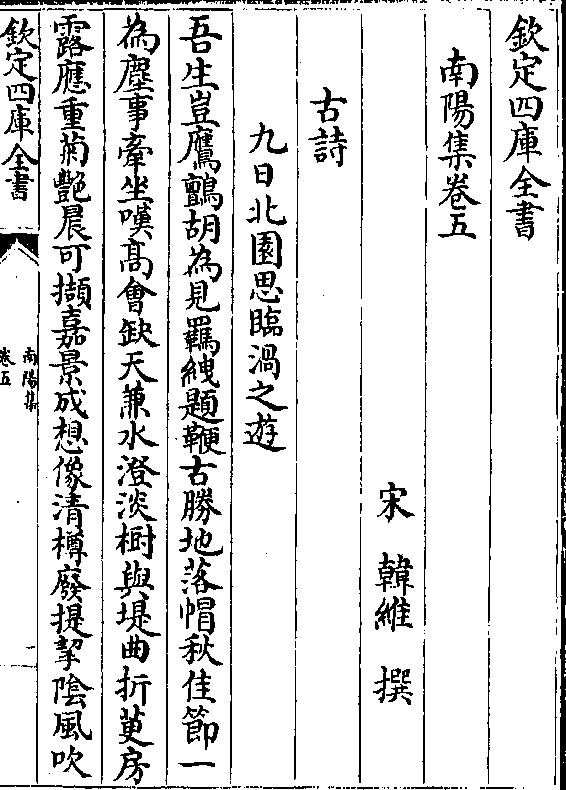 欽定四庫全書
南陽集卷五
宋 韓維 撰
古詩
九日北園思臨渦之遊
吾生豈鷹鸇胡為見羈紲題鞭古勝地落帽秋佳節一
為塵事牽坐嘆髙會缺天兼水澄淡樹與堤曲折萸房
露應重菊艶晨可擷嘉景成想像清樽廢提挈陰風吹
欽定四庫全書
南陽集
卷五
一